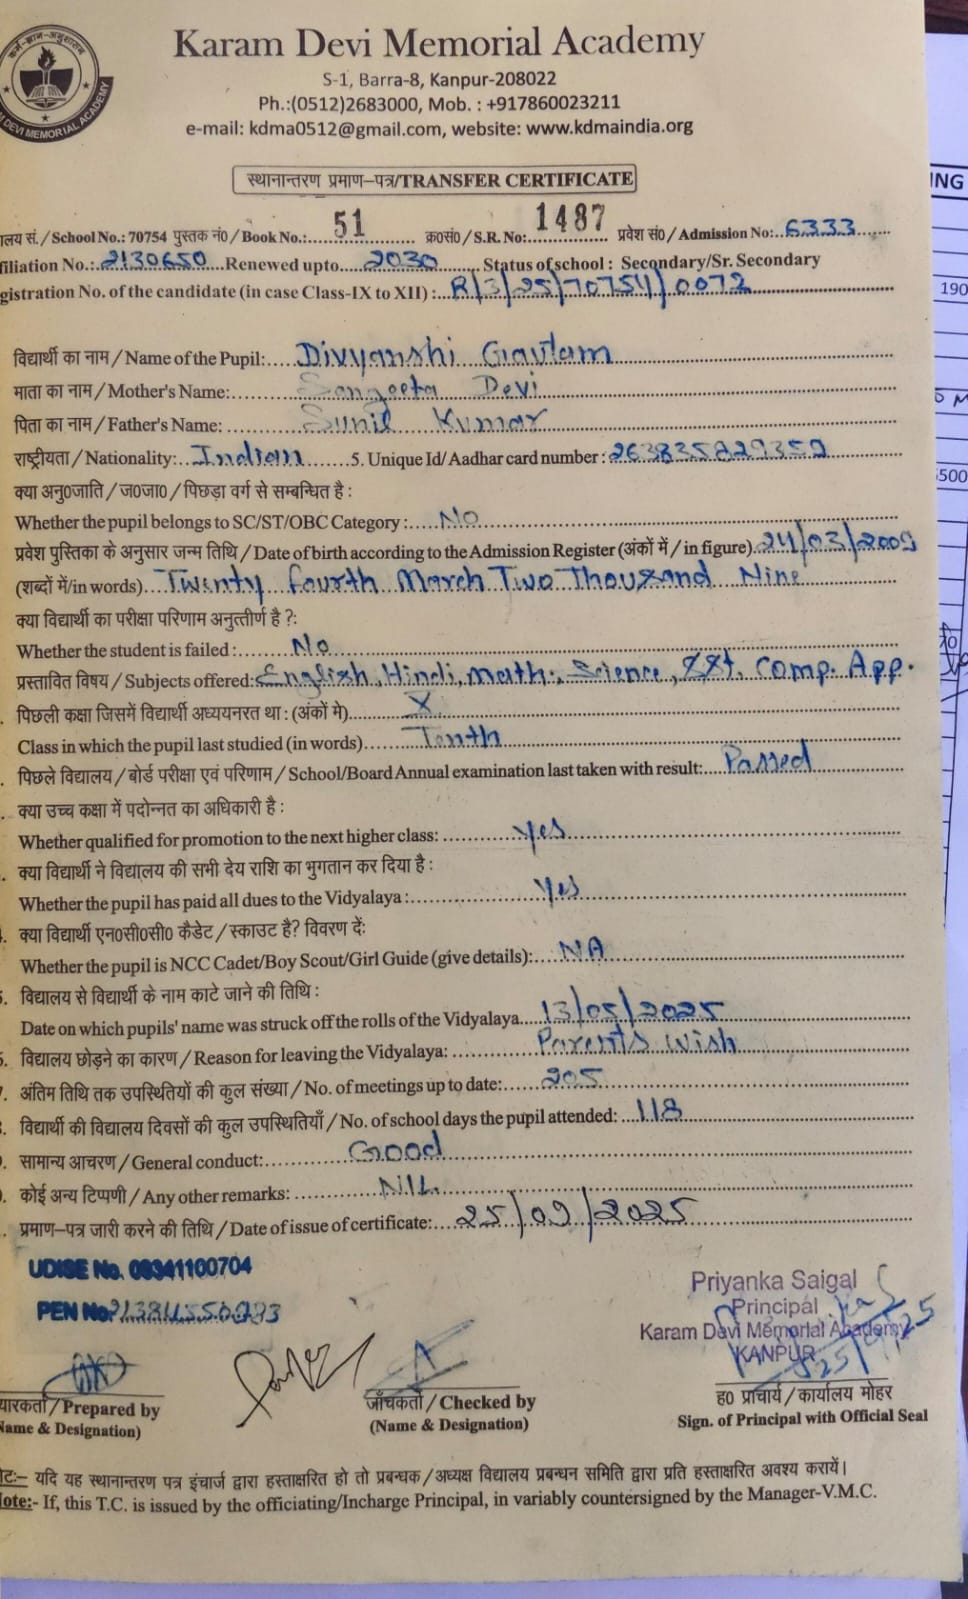 कर्म-ज्ञान-अनुशासन
DEVI MEMORIAL ACADEMY
Karam Devi Memorial Academy
S-1, Barra-8, Kanpur-208022
Ph.:(0512)2683000, Mob. : +917860023211
e-mail: kdma0512@gmail.com, website: www.kdmaindia.org
स्थानान्तरण प्रमाण-पत्र/TRANSFER CERTIFICATE
लय सं./School No.: 70754 पुस्तक नं0/Book No.: 51 क्र0सं0/S.R. No: 1487 प्रवेश सं0/Admission No: 6333
filiation No.: 2130650 Renewed upto 2030 Status of school : Secondary/Sr. Secondary
gistration No. of the candidate (in case Class-IX to XII) : R/3/25/70754/0072
विद्यार्थी का नाम/Name of the Pupil: Divyanshi Gautam
माता का नाम/Mother's Name: Sangeeta Devi
पिता का नाम/Father's Name: Sunil Kumar
राष्ट्रीयता/Nationality: Indian 5. Unique Id/Aadhar card number : 263835829359
क्या अनु0जाति/ज0जा0/पिछड़ा वर्ग से सम्बन्धित है :
Whether the pupil belongs to SC/ST/OBC Category : No
प्रवेश पुस्तिका के अनुसार जन्म तिथि/Date of birth according to the Admission Register (अंकों में/in figure) 24/03/2009
(शब्दों में/in words) Twenty Fourth March Two Thousand Nine
क्या विद्यार्थी का परीक्षा परिणाम अनुत्तीर्ण है ?:
Whether the student is failed : No
प्रस्तावित विषय/Subjects offered: English, Hindi, Math, Science, SSt, Comp. App.
. पिछली कक्षा जिसमें विद्यार्थी अध्ययनरत था : (अंकों मे) X
Class in which the pupil last studied (in words) Tenth
. पिछले विद्यालय/बोर्ड परीक्षा एवं परिणाम/School/Board Annual examination last taken with result: Passed
. क्या उच्च कक्षा में पदोन्नत का अधिकारी है :
Whether qualified for promotion to the next higher class: Yes
. क्या विद्यार्थी ने विद्यालय की सभी देय राशि का भुगतान कर दिया है :
Whether the pupil has paid all dues to the Vidyalaya : Yes
. क्या विद्यार्थी एन0सी0सी0 कैडेट/स्काउट है? विवरण दें:
Whether the pupil is NCC Cadet/Boy Scout/Girl Guide (give details): NA
. विद्यालय से विद्यार्थी के नाम काटे जाने की तिथि :
Date on which pupils' name was struck off the rolls of the Vidyalaya 13/05/2025
. विद्यालय छोड़ने का कारण/Reason for leaving the Vidyalaya: Parents Wish
. अंतिम तिथि तक उपस्थितियों की कुल संख्या/No. of meetings up to date: 205
. विद्यार्थी की विद्यालय दिवसों की कुल उपस्थितियाँ/No. of school days the pupil attended: 118
. सामान्य आचरण/General conduct: Good
. कोई अन्य टिप्पणी/Any other remarks: NIL
. प्रमाण-पत्र जारी करने की तिथि/Date of issue of certificate: 25/09/2025
UDISE No. 09341100704
PEN No.
Priyanka Saigal
Principal
Karam Devi Memorial Academy
KANPUR
यारकर्ता/Prepared by
Name & Designation)
जाँचकर्ता/Checked by
(Name & Designation)
ह0 प्राचार्य/कार्यालय मोहर
Sign. of Principal with Official Seal
ोट:- यदि यह स्थानान्तरण पत्र इंचार्ज द्वारा हस्ताक्षरित हो तो प्रबन्धक/अध्यक्ष विद्यालय प्रबन्धन समिति द्वारा प्रति हस्ताक्षरित अवश्य करायें।
ote:- If, this T.C. is issued by the officiating/Incharge Principal, in variably countersigned by the Manager-V.M.C.
ING
190
500